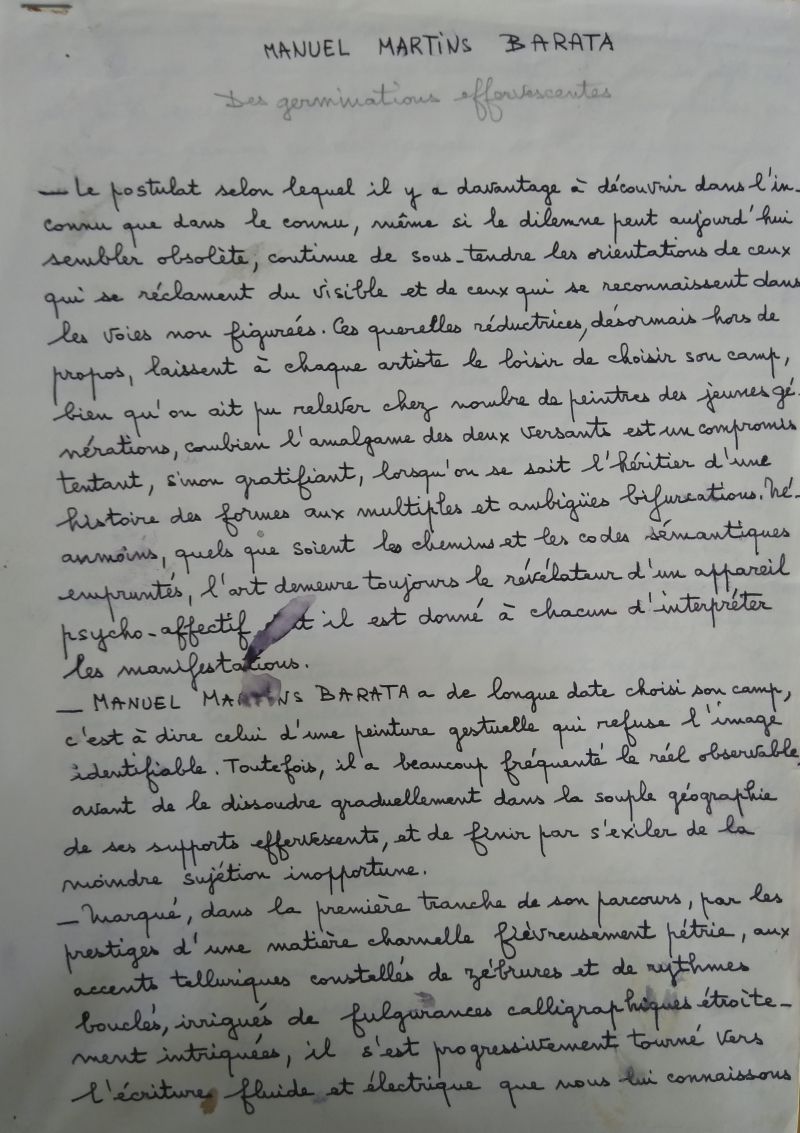 MANUEL MARTINS BARATA
Des germinations effervescentes
— Le postulat selon lequel il y a davantage à découvrir dans l'in-
connu que dans le connu, même si le dilemne peut aujourd'hui
sembler obsolète, continue de sous-tendre les orientations de ceux
qui se réclament du visible et de ceux qui se reconnaissent dans
les voies non figurées. Ces querelles réductrices, désormais hors de
propos, laissent à chaque artiste le loisir de choisir son camp,
bien qu'on ait pu relever chez nombre de peintres des jeunes gé-
nérations, combien l'amalgame des deux versants est un compromis
tentant, sinon gratifiant, lorsqu'on se sait l'héritier d'une
histoire des formes aux multiples et ambigües bifurcations. Né-
anmoins, quels que soient les chemins et les codes sémantiques
empruntés, l'art demeure toujours le révélateur d'un appareil
psycho-affectif il est donné à chacun d'interpréter
les manifestations.
— MANUEL MARTINS BARATA a de longue date choisi son camp,
c'est à dire celui d'une peinture gestuelle qui refuse l'image
identifiable. Toutefois, il a beaucoup fréquenté le réel observable,
avant de le dissoudre graduellement dans la souple géographie
de ses supports effervescents, et de finir par s'exiler de la
moindre sujétion inopportune.
— Marqué, dans la première tranche de son parcours, par les
prestiges d'une matière charnelle fièvreusement pétrie, aux
accents telluriques constellés de zébrures et de rythmes
bouclés, irrigués de fulgurances calligraphiques étroite-
ment intriquées, il s'est progressivement tourné vers
l'écriture fluide et électrique que nous lui connaissons